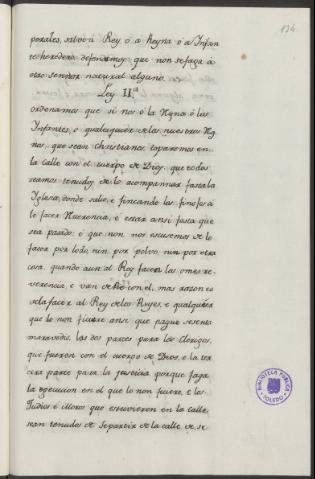 134
porales, salvo si Rey, ó a Reyna ó a Infan
te heredero defendemos que non se faga á
otro sennor natural alguno.
Ley II.ª
ordenamos que si nos ó la Reyna ó los
Infantes, o qualesquier de los nuestros Reg
nos, que sean christianos toparemos en
la calle con el cuerpo de Dios, que todos
seamos tenudos de lo acompannar fasta la
Iglesia, donde salió, é fincando los finojos á
le facer Reverencia, é estar ansi fasta que
sea pasado: é que non nos escusemos de lo
facer por lodo, nin por polvo, nin por otra
cosa. quando aun al Rey facen los omes re-
verencia, e van de Pie con el, mas razon es
de la facer al Rey de los Reyes, e qualquier
que lo non ficiere ansi que pague sesenta
maravedis, las dos partes para los Clerigos,
que fueren con el cuerpo de Dios, e la ter
cera parte para la justicia porque faga
la egecucion en el que lo non ficiere, e los
Judios é Moros que estuvieren en la calle
sean tenudos de se partir de la calle, de se
BIBLIOTECA PUBLICA
TOLEDO